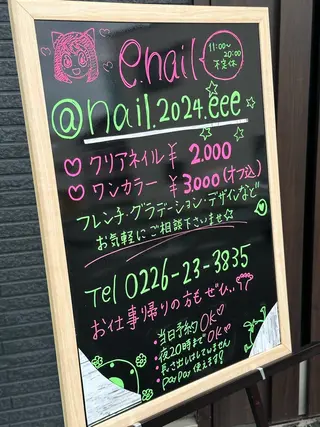 e.nail
11:00〜
20:00
不定休
@nail.2024.eee
♡ クリアネイル ¥ 2.000
♡ ワンカラー ¥ 3.000(オフ込)
フレンチ・グラデーション・デザインなど
お気軽にご相談下さいませ☆
Tel 0226-23-3835
お仕事帰りの方もぜひ
・当日予約OK♡
・夜20時までOK♡
・長さ出しはしていません
・PayPay使えます!